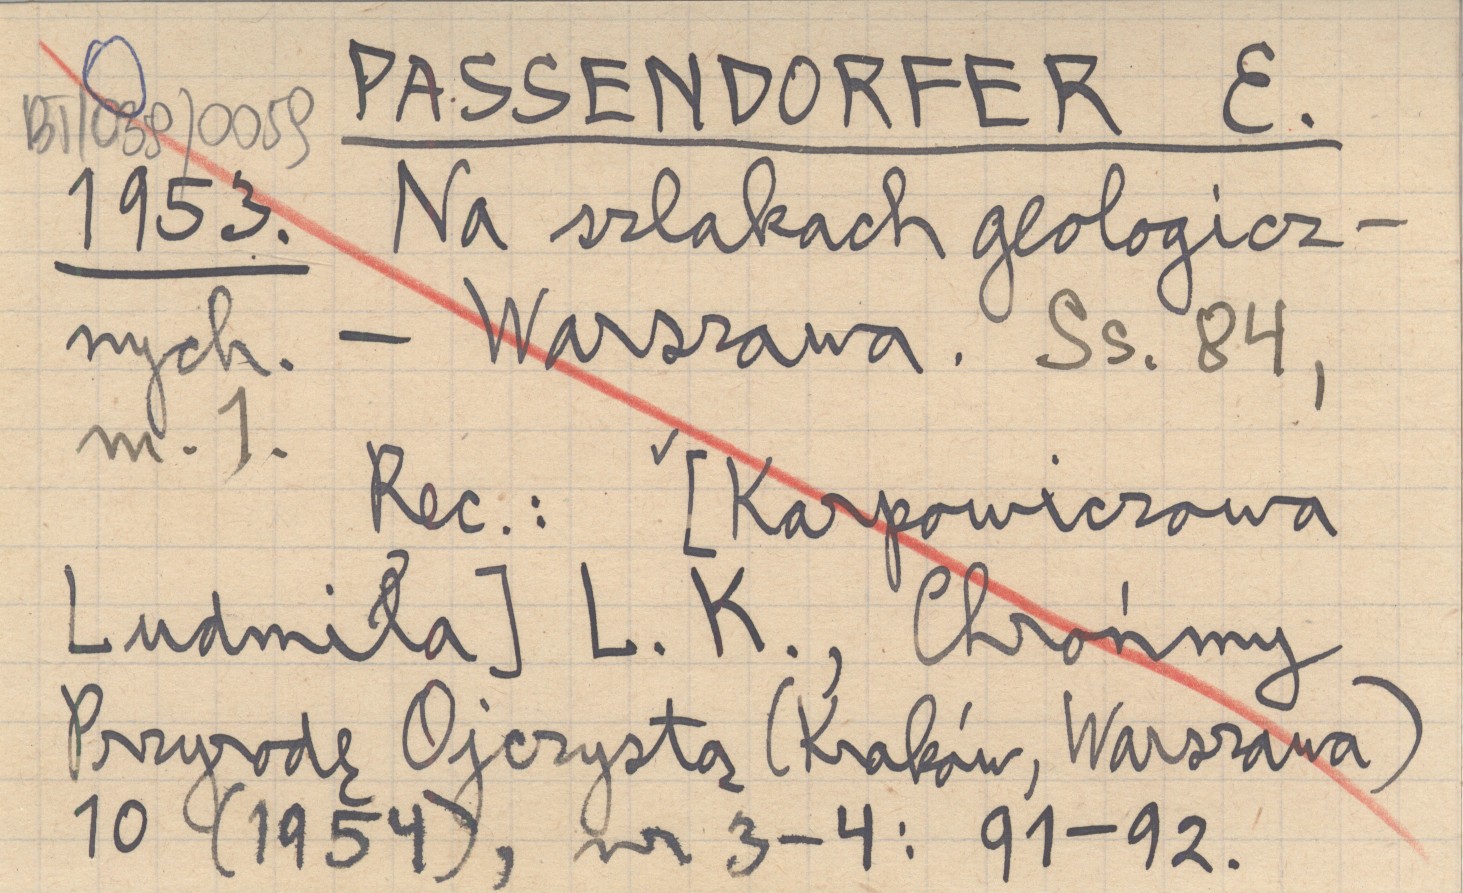 PASSENDORFER E.
BT/039/0059
1953. Na szlakach geologicz-
nych. — Warszawa. Ss. 84,
m. 1.
Rec.: [Karpowiczowa
Ludmiła] L. K., Chrońmy
Przyrodę Ojczystą (Kraków, Warszawa)
10 (1954), nr 3-4: 91-92.